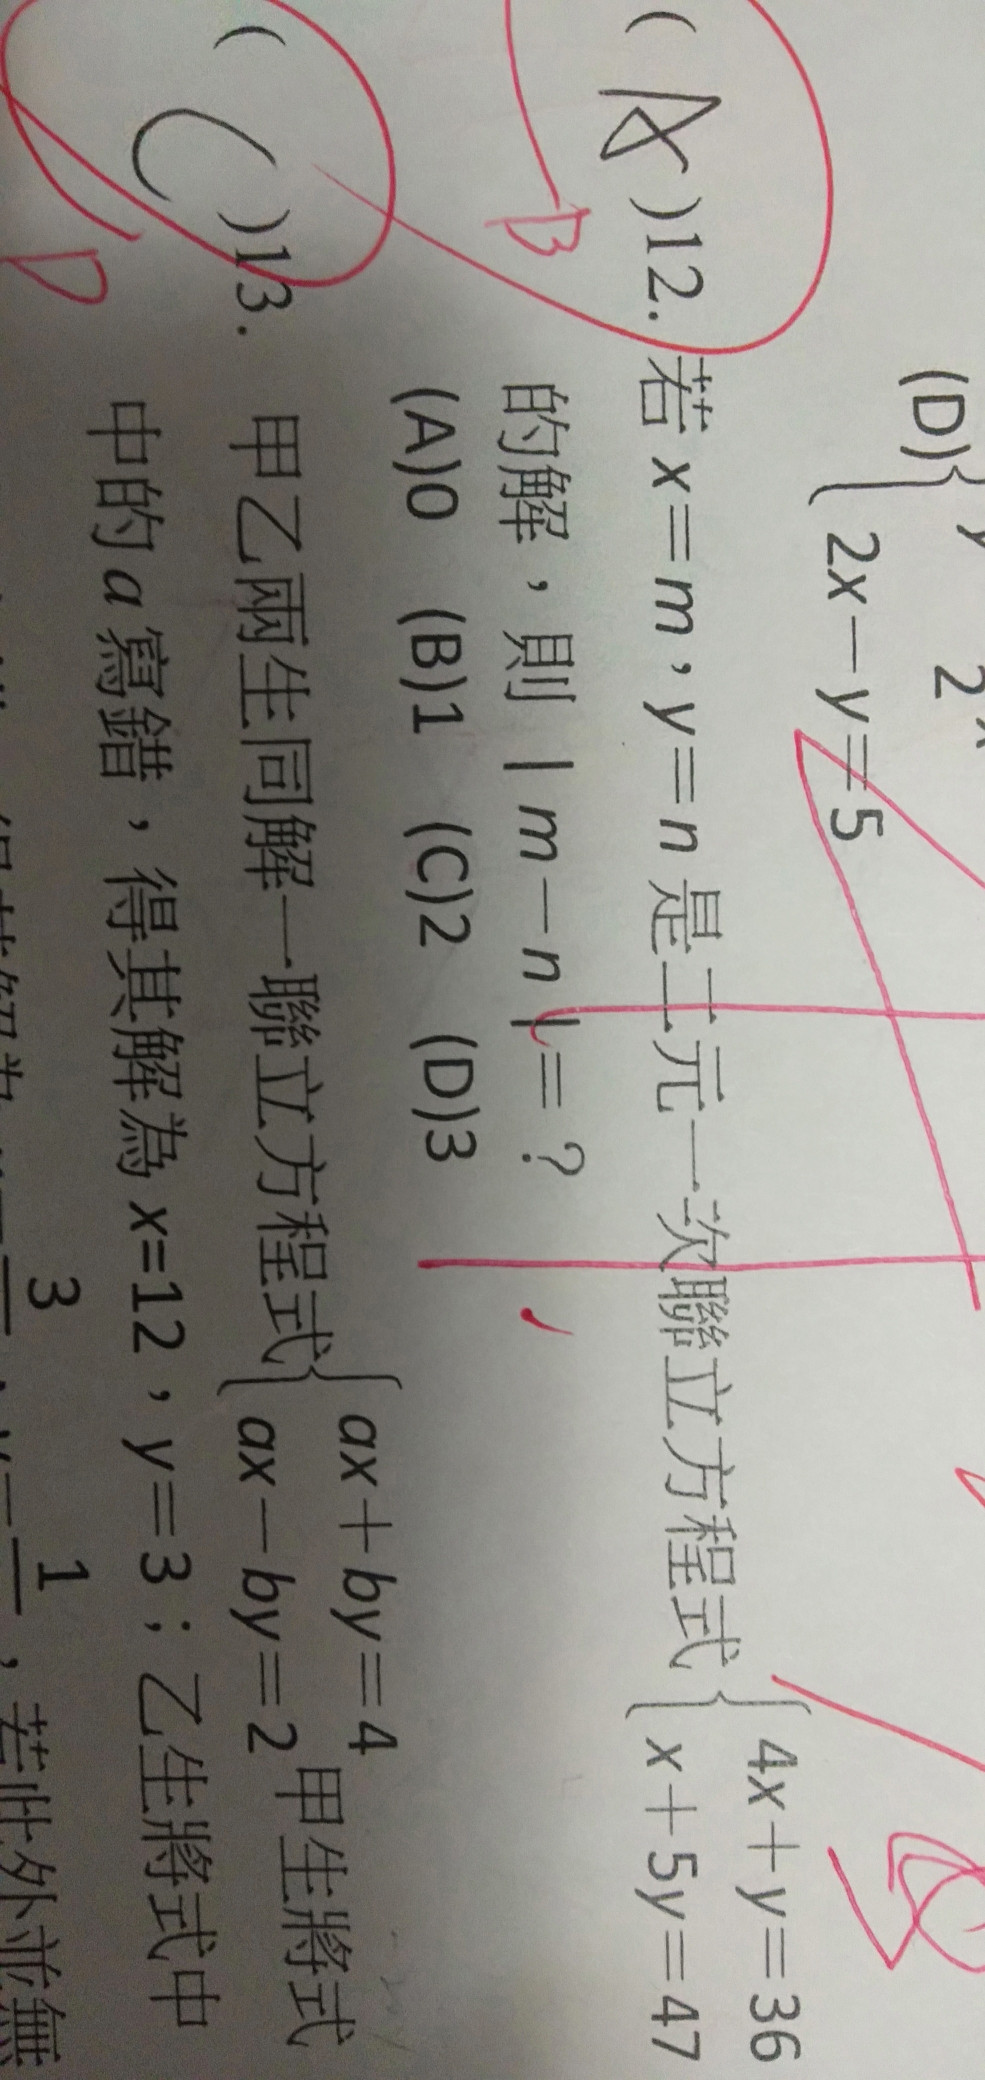 (D){ y 2
2x－y＝5
( A )12. 若 x＝m，y＝n 是二元一次聯立方程式{ 4x＋y＝36
x＋5y＝47
B 的解，則｜m－n｜＝？
(A)0 (B)1 (C)2 (D)3
( C )13. 甲乙兩生同解一聯立方程式{ ax＋by＝4
ax－by＝2 甲生將式
D 中的 a 寫錯，得其解為 x=12，y＝3；乙生將式中
3 1 ，若此外並無